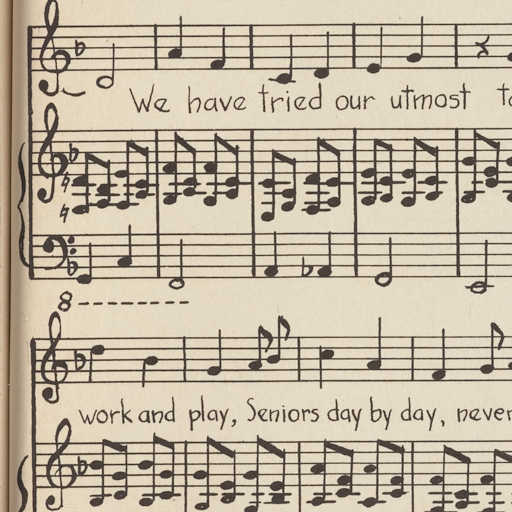 We have tried our utmost
8
work and play, Seniors day by day, never